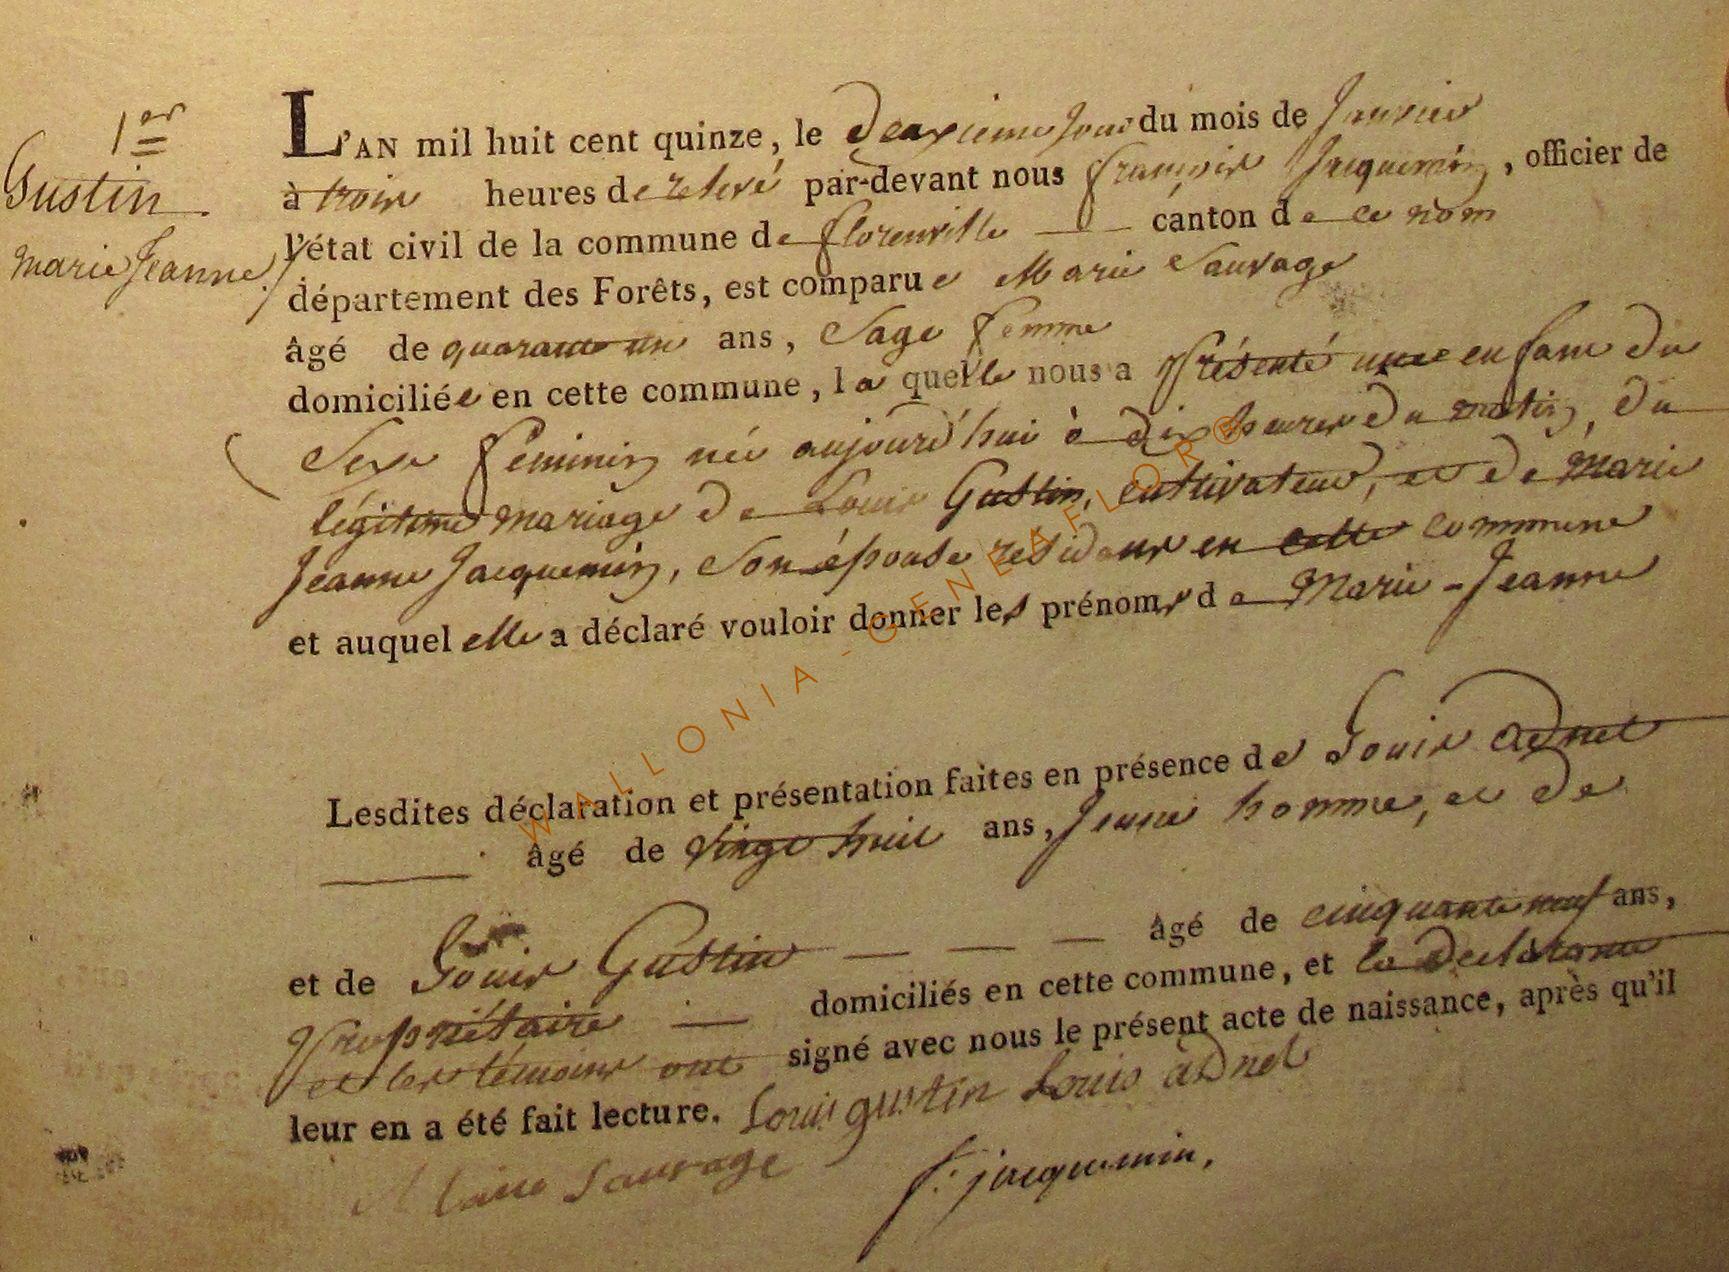 1er
Gustin
Marie Jeanne
L'AN mil huit cent quinze, le Deuxieme Jour du mois de Janvier
à trois heures de relevé par-devant nous françois Jacquemin, officier de
l'état civil de la commune de florenville canton de ce nom
département des Forêts, est comparue Marie Sauvage
âgé de quarante un ans, Sage femme
domiciliée en cette commune, laquelle nous a Présenté une enfant du
Sexe feminin née aujourd'hui à dix heures du matin, du
légitime mariage de Louis Gustin, cultivateur, et de Marie
Jeanne Jacquemin, Son épouse résidant en cette commune
et auquel elle a déclaré vouloir donner les prénoms de Marie-Jeanne
Lesdites déclaration et présentation faites en présence de Louis adnet
âgé de vingt huit ans, Jeune homme, et de
et de Louis Gustin âgé de cinquante neuf ans,
Propriétaire domiciliés en cette commune, et la Declarante
et les témoins ont signé avec nous le présent acte de naissance, après qu'il
leur en a été fait lecture. Louis gustin Louis adnet
Marie Sauvage
f. jacquemin.
WALLONIA-GENEAFLORE